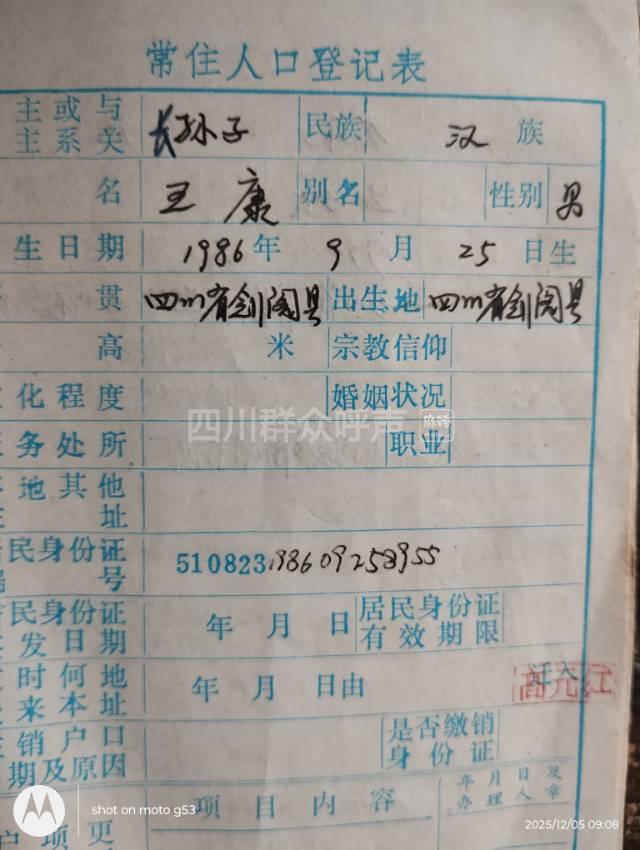 常住人口登记表
主或与 长孙子 民族 汉 族
主系关
名 王康 别名 性别 男
生日期 1986年 9 月 25 日生
贯 四川省剑阁县 出生地 四川省剑阁县
高 米 宗教信仰
化程度 婚姻状况
务处所 职业
地其他
址
民身份证 510823198609258955
号
民身份证 年 月 日 居民身份证
发日期 有效期限
时何地 年 月 日由 迁入
来本址 高元红
销户口 是否缴销
期及原因 身份证
项目内容 年月日及
办理人章
户项更
四川群众呼声 麻辣
shot on moto g53
2025/12/05 09:08